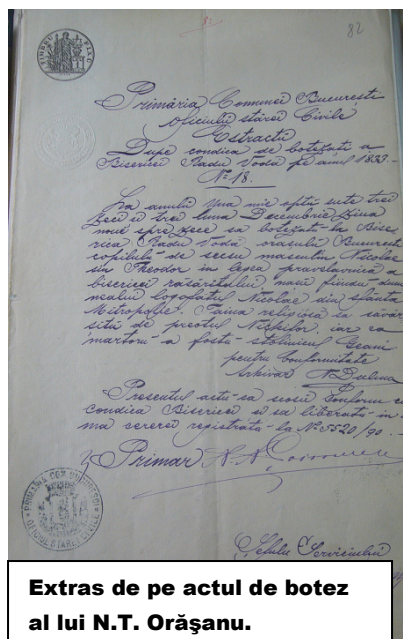 82
82
TIMBRU FIX
Primăria Comunei Bucuresti
Oficiulŭ stărei Civile
Estractŭ
Dupe condica de botezați a
Bisericei Radu Vodă pe anul 1833
No 18.
La anulŭ una mie optŭ sute trei
zeci și trei luna Decembrie ziua
nouĕ spre zece sa botezatŭ la Bise
rica Radu Vodă orasului Bucuresti
copilulŭ de sexŭ masculin Nicolae
sin Theodor in legea pravoslavnică a
bisericei răsăritului, nasŭ fiindŭ dum
nealui logofătul Nicolae din sfânta
Mitropolie. Taina religiosă sa săvâr
sitŭ de preotul Nichifor, iar ca
martorŭ a fostŭ stolnicul Geani
pentru Conformitate
Arhivar
Presentul actŭ sa scosŭ Conform cu
condica Bisericei si sa liberatŭ in
ma cererei registrată la No 5520/90.
p. Primar
PRIMĂRIA COM. BUCURESCI
OFICIUL STĂREI CIVILE
Șefulu Serviciului
Extras de pe actul de botez
al lui N.T. Orăşanu.